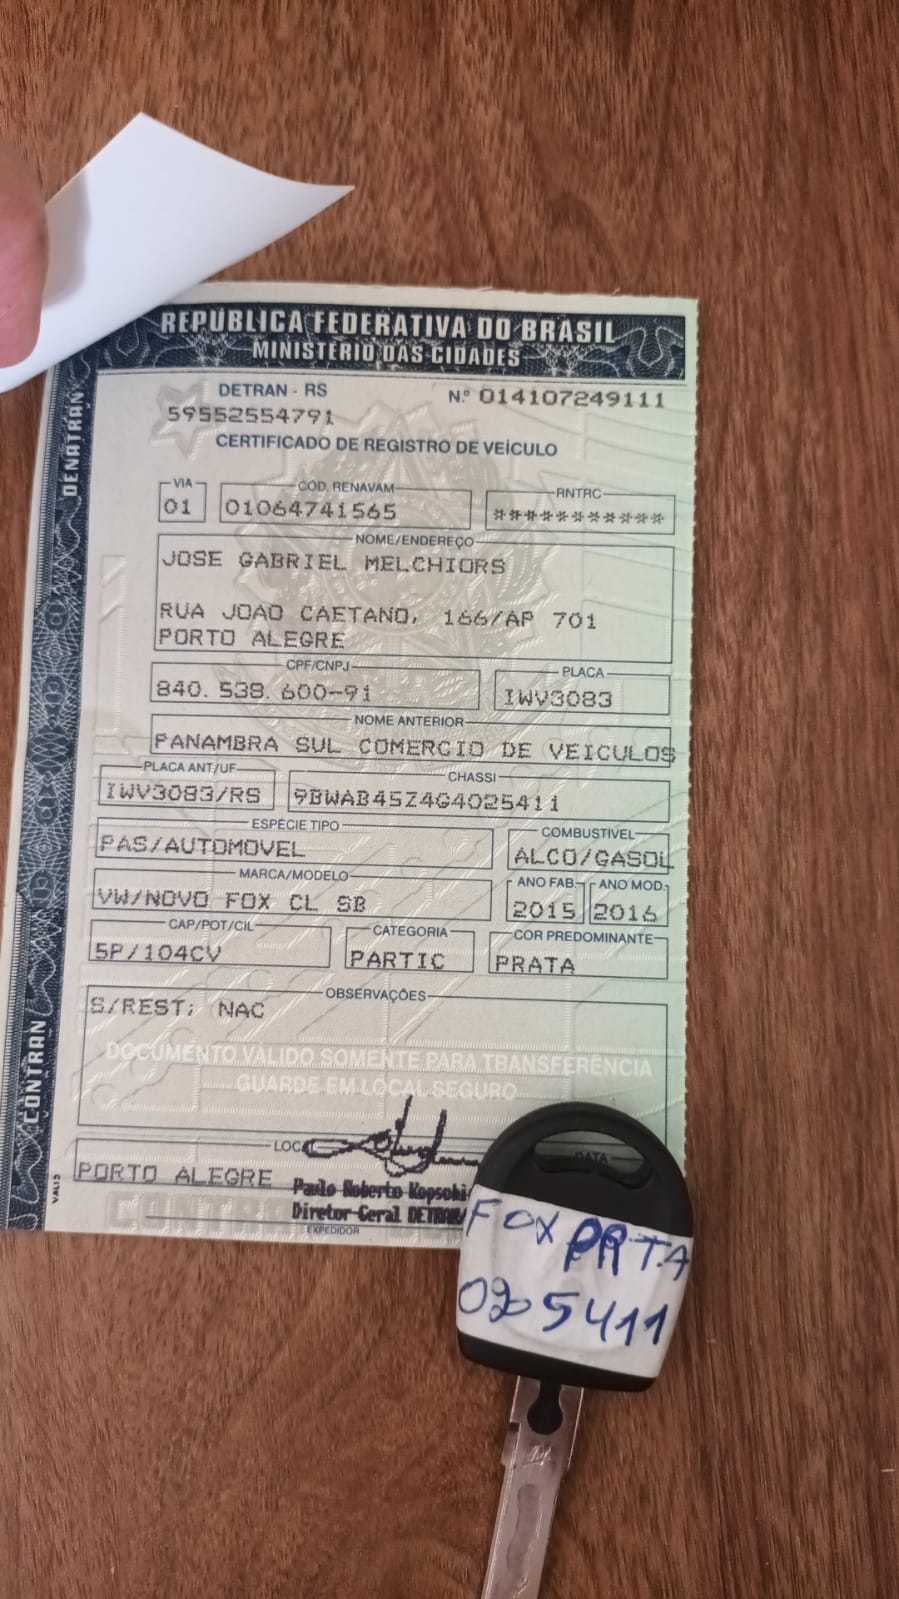 REPÚBLICA FEDERATIVA DO BRASIL
MINISTÉRIO DAS CIDADES
DENATRAN
CONTRAN
DETRAN - RS
N.º 014107249111
59552554791
CERTIFICADO DE REGISTRO DE VEÍCULO
VIA
CÓD. RENAVAM
RNTRC
01
01064741565
***********
NOME/ENDEREÇO
JOSE GABRIEL MELCHIORS
RUA JOAO CAETANO, 166/AP 701
PORTO ALEGRE
CPF/CNPJ
PLACA
840.538.600-91
IWV3083
NOME ANTERIOR
PANAMBRA SUL COMERCIO DE VEICULOS
PLACA ANT/UF
CHASSI
IWV3083/RS
9BWAB45Z4G4025411
ESPÉCIE TIPO
COMBUSTÍVEL
PAS/AUTOMOVEL
ALCO/GASOL
MARCA/MODELO
ANO FAB.
ANO MOD.
VW/NOVO FOX CL SB
2015
2016
CAP/POT/CIL
CATEGORIA
COR PREDOMINANTE
5P/104CV
PARTIC
PRATA
OBSERVAÇÕES
S/REST; NAC
DOCUMENTO VÁLIDO SOMENTE PARA TRANSFERÊNCIA
GUARDE EM LOCAL SEGURO
LOC
DATA
PORTO ALEGRE
Paulo Roberto Kopschi
Diretor-Geral DETRAN/
EXPEDIDOR
FOX PRTA
025411